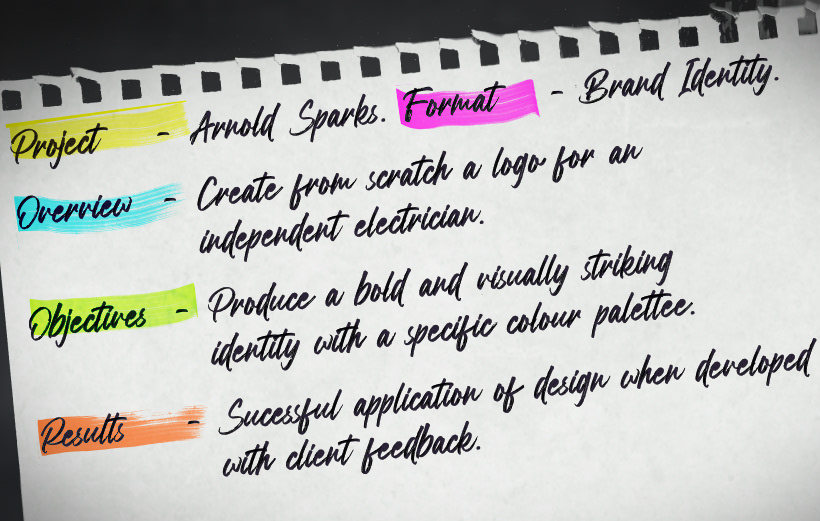 Project - Arnold Sparks. Format - Brand Identity.
Overview - Create from scratch a logo for an
independent electrician.
Objectives - Produce a bold and visually striking
identity with a specific colour palettee.
Results - Sucessful application of design when developed
with client feedback.